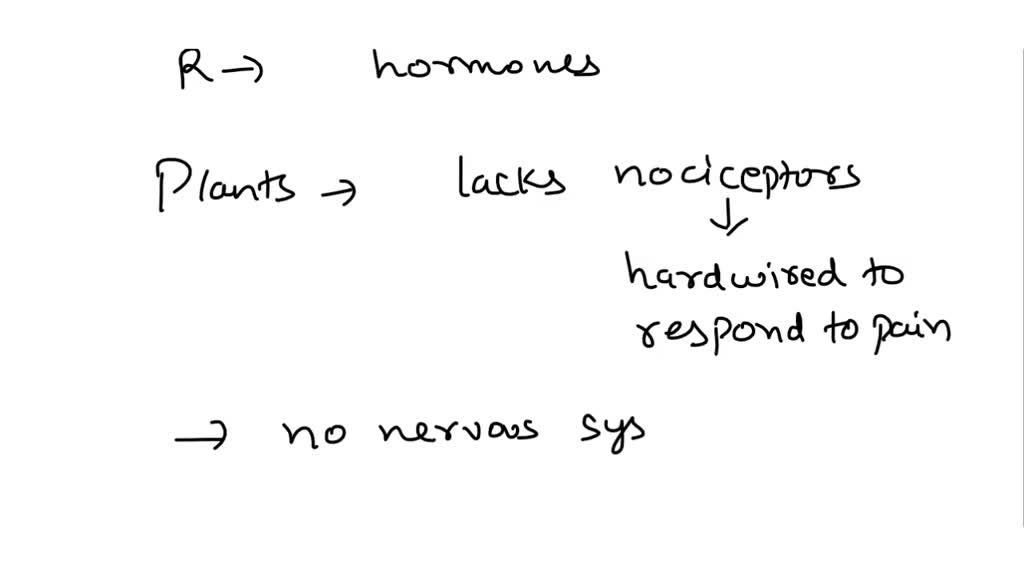 R → hormones
Plants → lacks nociceptors
↓
hardwired to
respond to pain
→ no nervous sys